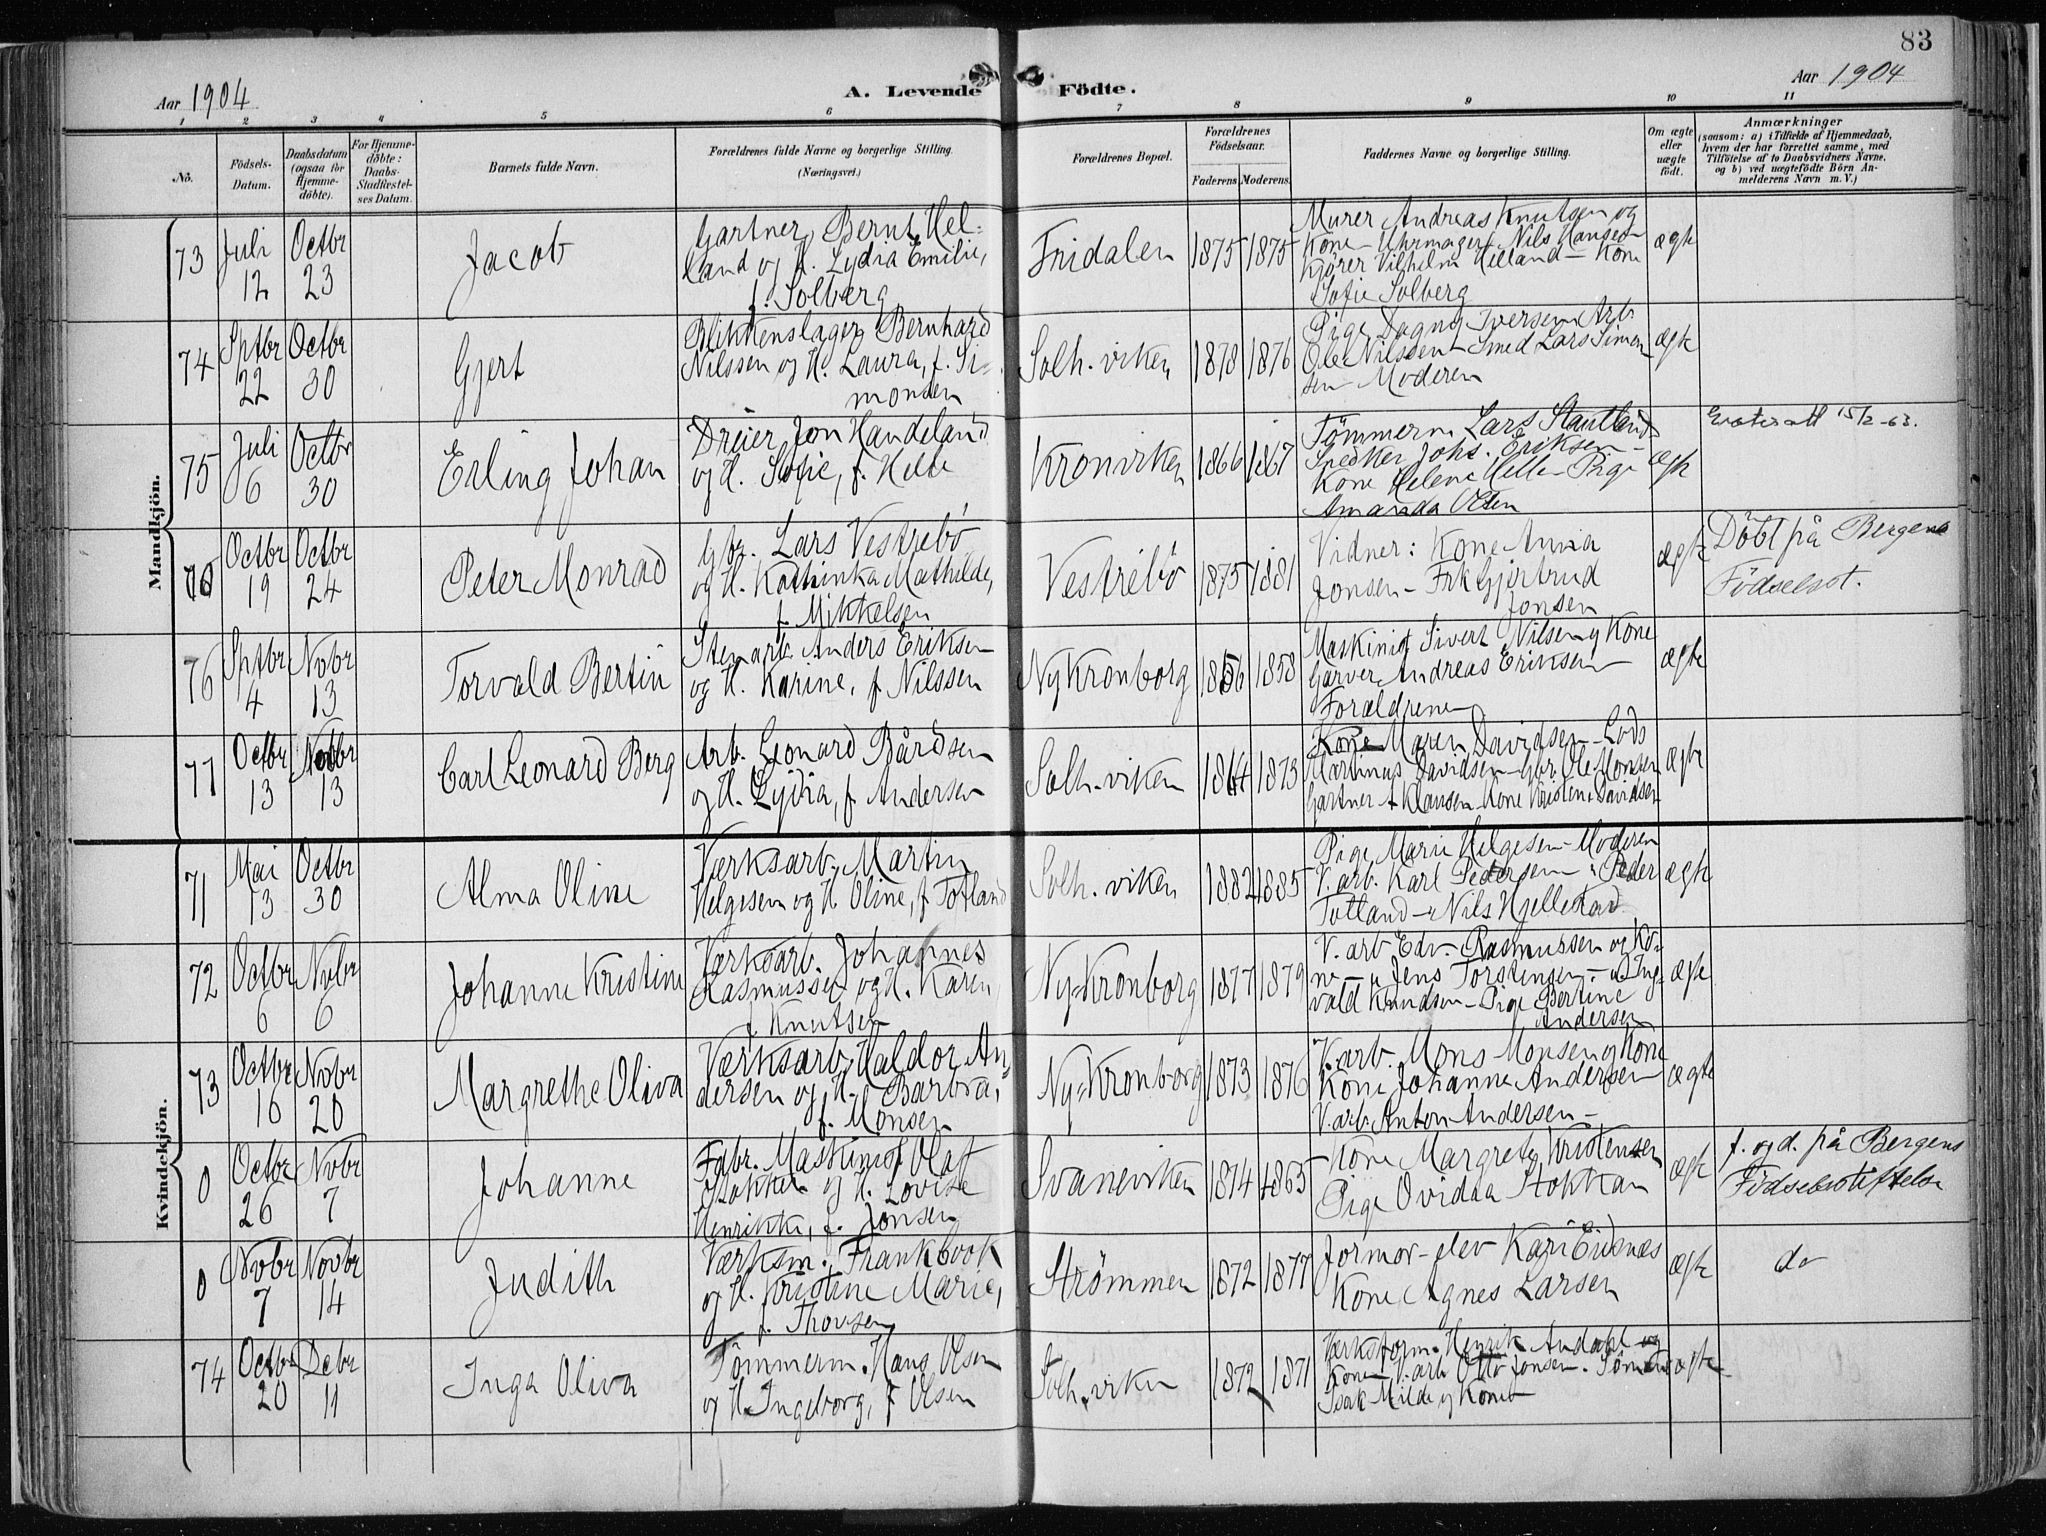 83
Aar 1904
A. Levende Födte.
Aar 1904
1 2 3 4 5 6 7 8 9 10 11
No.
Födsels-
Datum.
Daabsdatum
(ogsaa for
Hjemme-
döbte).
For Hjemme-
döbte:
Daabs-
Stadfæstel-
ses Datum.
Barnets fulde Navn.
Forældrenes fulde Navne og borgerlige Stilling.
(Næringsvei.)
Forældrenes Bopæl.
Forældrenes
Födselsaar.
Faderens. Moderens.
Faddernes Navne og borgerlige Stilling.
Om ægte
eller
uægte
födt.
Anmærkninger
(saasom: a) i Tilfælde af Hjemmedaab,
hvem der har forrettet samme, med
Tilföielse af to Daabsvidners Navne,
og b) ved uægtefödte Börn An-
melderens Navn m. V.)
Mandkjön.
73
Juli
12
Octbr
23
Jacob
Gartner Bernt Hel-
land og H. Lydia Emilie,
f. Solberg
Fridalen
1875
1875
Murer Andreas Knutsen og
Kone - Uhrmager Nils Hansen
Kjører Vilhelm Helland - Kone
Sofie Solberg
ægte
74
Sptbr
22
Octbr
30
Gjert
Blikkenslager Bernhard
Nilssen og H. Laura, f. Si-
monsen
Solh. viken
1878
1876
Pige Dagny Iversen Arb.
Ole Nilssen - Smed Lars Simon-
sen - Moderen
ægte
75
Juli
6
Octbr
30
Erling Johan
Dreier Jon Handeland
og H. Sofie, f. Helle
Kronviken
1866
1867
Tømmerm. Lars Stautland
Snedker Johs. Eriksen -
Kone Helene Helle - Pige
Amanda Olsen
ægte
15/2-63.
76
Octbr
19
Octbr
24
Peter Monrad
Gbr. Lars Vestrebø
og H. Kathinka Mathilde,
f. Mikkelsen
Vestrebø
1875
1881
Vidner: Kone Anna
Jonsen - Frk Gjertrud
Jonsen
ægte
Döbt på Bergens
Födselsst.
76
Sptbr
4
Novbr
13
Torvald Bertin
Stenarb. Anders Eriksen
og H. Karine, f. Nilssen
Ny Kronborg
1856
1858
Maskinist Sivert Nilsen og Kone
Garver Andreas Eriksen
Forældrene
ægte
77
Octbr
13
Novbr
13
Carl Leonard Berg
Arb. Leonard Bårdsen
og H. Lydia, f. Andersen
Solh.viken
1864
1873
Kone Maren Davidsen - Lods
Martinus Davidsen - Gbr. Ole Monsen
Gartner A Klausen - Kone Kristine Davidsen
ægte
Kvindekjön.
71
Mai
13
Octbr
30
Alma Oline
Værksarb. Martin
Helgesen og H. Oline, f. Totland
Solh. viken
1882
1885
Pige Marie Helgesen - Moderen
V. arb. Karl Pedersen - Peder
Totland - Nils Hjellestad
ægte
72
Octbr
6
Nvbr
6
Johanne Kristine
Værksarb. Johannes
Rasmussen og H. Karen
f. Knutsen
Ny-Kronborg
1877
1879
V. arb Edv. Rasmussen og Ko-
ne - " Jens Torstensen - " Ing-
vald Knudsen - Pige Bertine
Andersen
ægte
73
Octbr
16
Novbr
20
Margrethe Oliva
Værksarb. Haldor An-
dersen og H. Barbra,
f. Monsen
Ny-Kronborg
1873
1876
V.arb. Mons Monsen og Kone
Kone Johanne Andersen
V.arb. Anton Andersen -
ægte
0
Octbr
26
Novbr
7
Johanne
Fabr. Maskinist Olaf
Stokken og H. Lovise
Henrikke, f. Jonsen
Svaneviken
1874
1865
Kone Margrete Kristensen
Pige Ovidia Stokkan
ægte
f. og d. på Bergens
Födselsstiftelse
0
Novbr
7
Novbr
14
Judith
Værksm. Frank Cook
og H. Kristine Marie,
f. Thorsen
Strømmen
1872
1877
Jormor-elev Kari Eidsnæs
Kone Agnes Larsen
ægte
do
74
Octbr
20
Debr
11
Inga Oliva
Tømmerm. Hans Olsen
og H. Ingeborg, f. Olsen
Solh.viken
1872
1871
Værksform. Henrik Andahl og
Kone - V.arb Otto Jonsen.
Isak Milde og Kone
ægte